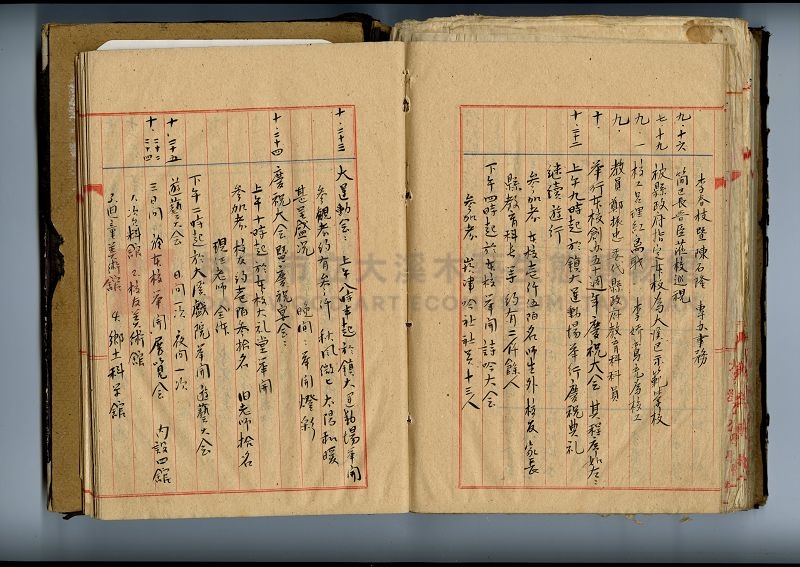 李今枝暨陳石隆 專办事務
九.十六 簡区長啓臣蒞校巡視
七.十九 被縣政府指定本校為大溪区示範学校
九.一 校工呂理紅為職 李 充為校工
九. 教員鄭振忠 縣政府教育科科員
十. 举行本校創立五十週年慶祝大会 其程序如左:
十.二十三 上午九時起於鎮大運動場举行慶祝典礼
継續遊行
参加者 本校壱仟五陌名師生外 校友、家長
縣教育科長等 約有二仟餘人
下午四時起於本校举開詩吟大会
参加者 崁津吟社社員十三人
十.二十三 大運動会:上午八時半起於鎮大運動場举開
参観者約有参仟 秋風微 太陽和暖
甚呈盛況 晚間:举開燈彩
十.二十四 慶祝大会暨慶祝宴会:
上午十時起於本校大礼堂举開
参加者 校友約壱陌参拾名 旧老師拾名
現任老師全体
下午二時起於大溪戲院举開遊藝大会
十.二十五 遊藝大会 日间一次 夜间一次
十.二十三 二十四 三日间:於本校举開展覧会 内設四館
1.次 科館 2.校友美術館
3.児童美術館 4.鄉土科学館